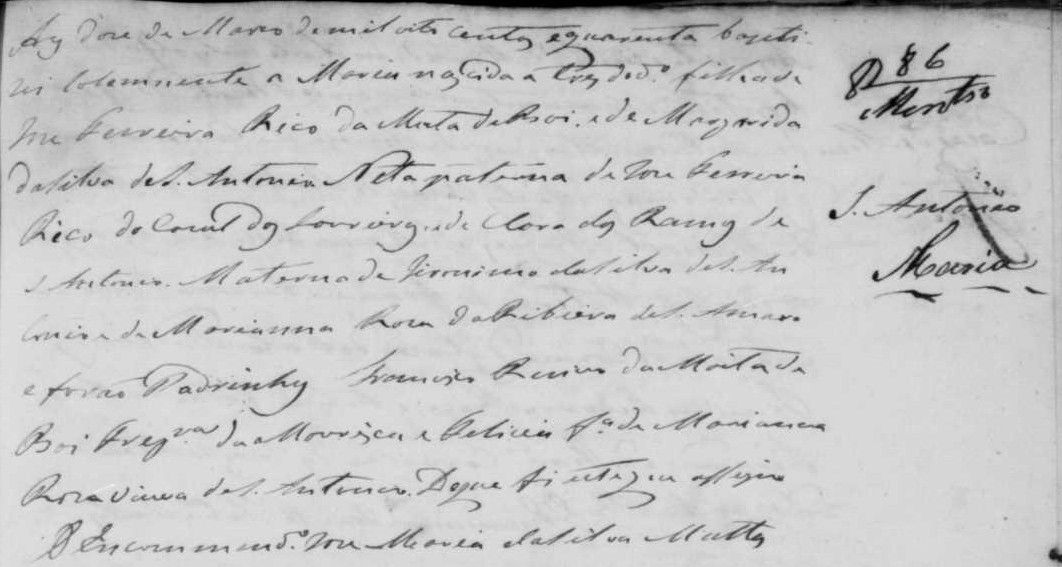 Aos doze de Março de mil oito centos e quarenta bapti-
zei solemnente a Maria nascida a tres do do. filha de
Joze Ferreira Rico da Mata de Boi, e de Margarida
da Silva de S. Antonio. Neta paterna de Joze Ferreira
Rico do Cazal dos e de Clara dos Ramos de
S Antonio. Materna de Jironimo da Silva de S. An
tonio e de Marianna Roza da Ribeira de S. Amaro
e forão Padrinhos Francisco da Moita de
Boi Fregra. da Mourisca e Felicia fa. de Marianna
Roza viuva de S. Antonio. De que fiz este que assigno
O Encommendo. Joze Maria da Silva Mattos
86
S. Antonio
Maria